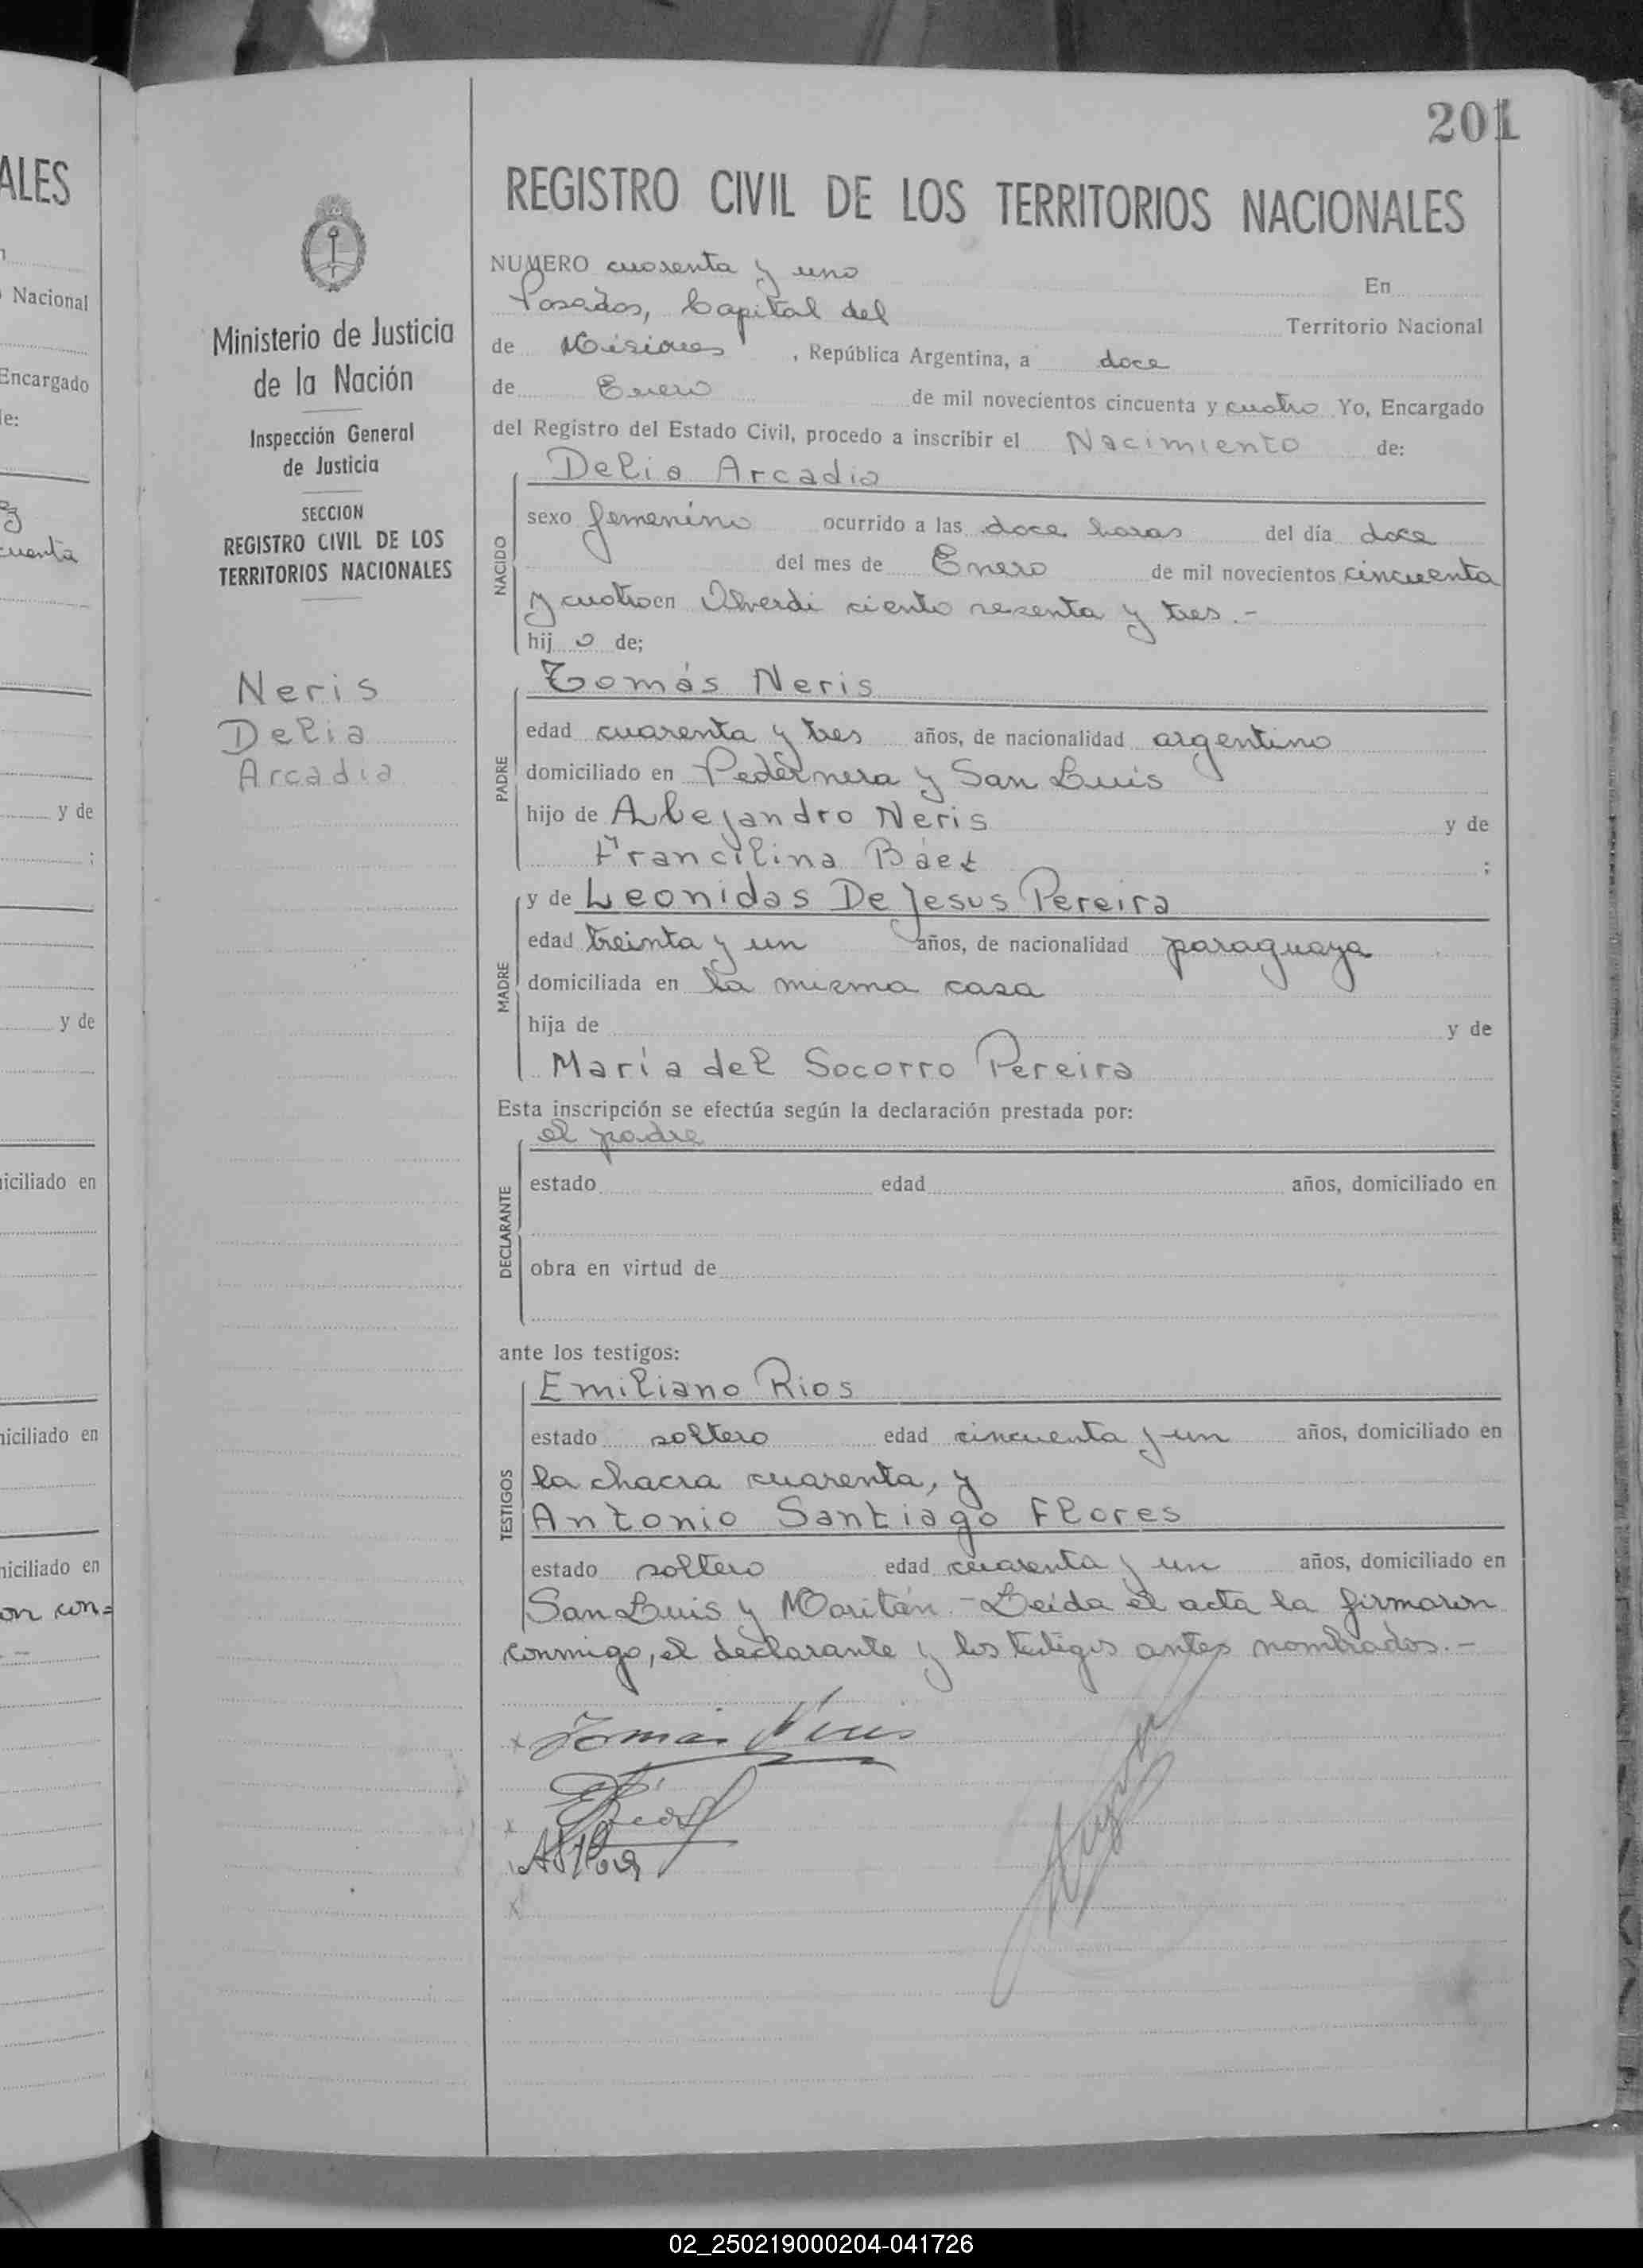 201
REGISTRO CIVIL DE LOS TERRITORIOS NACIONALES
Ministerio de Justicia
de la Nación
Inspección General
de Justicia
SECCION
REGISTRO CIVIL DE LOS
TERRITORIOS NACIONALES
Neris
Delia
Arcadia
NUMERO cuarenta y uno En
Posadas, Capital del Territorio Nacional
de Misiones, República Argentina, a doce
de Enero de mil novecientos cincuenta y cuatro Yo, Encargado
del Registro del Estado Civil, procedo a inscribir el Nacimiento de:
Delia Arcadia
NACIDO
sexo femenino ocurrido a las doce horas del día doce
del mes de Enero de mil novecientos cincuenta
y cuatro en Alverdi ciento sesenta y tres.-
hij a de;
Tomás Neris
PADRE
edad cuarenta y tres años, de nacionalidad argentino
domiciliado en Pedernera y San Luis
hijo de Alejandro Neris y de
Francilina Báez ;
y de Leonidas De Jesus Pereira
MADRE
edad treinta y un años, de nacionalidad paraguaya
domiciliada en la misma casa
hija de y de
María del Socorro Pereira
Esta inscripción se efectúa según la declaración prestada por:
el padre
DECLARANTE
estado edad años, domiciliado en
obra en virtud de
ante los testigos:
Emiliano Rios
TESTIGOS
estado soltero edad cincuenta y un años, domiciliado en
la chacra cuarenta, y
Antonio Santiago Flores
estado soltero edad cuarenta y un años, domiciliado en
San Luis y Moritán.- Leída el acta la firmaron
conmigo, el declarante y los testigos antes nombrados.-
x Tomás Neris
x
x
ALES
Nacional
Encargado
de:
cuenta
y de
;
y de
iciliado en
niciliado en
niciliado en
on con=
02_250219000204-041726